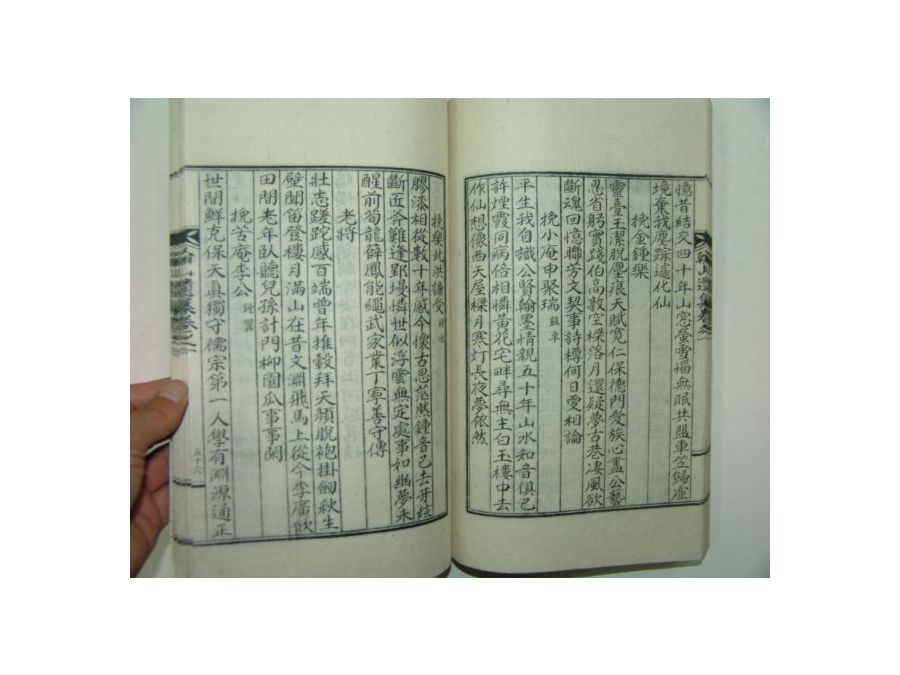 憶昔結交四十年山窓螢雪惱無眠共盟車笠歸虛
境棄我塵踪遽化仙
挽金鍾樂
靈臺玉潔脫塵痕天賦寬仁保德門愛族心盡公藝
忍省躬實踐伯高敦空樑落月還疑夢古巷凄風欲
斷魂回憶聯芳文契事詩樽何日更相論
挽小庵申聚瑞
平生我自識公賢翰墨情親五十年山水知音俱已
許煙霞同病倍相憐黃花宅畔尋無主白玉樓中去
作仙想像西天屋樑月寒灯長夜夢依然
挽樂此洪謙受
膠漆相從數十年感今懷古思茫然鍾音已去牙絃
斷匠斧難逢郢墁憐世似浮雲無定處事如幽夢未
醒前荀龍薛鳳能繩武家業丁寧善守傳
老將
壯志蹉跎感百端曾年推轂拜天顏脫袍掛劒秋生
壁聞笛登樓月滿山在昔文淵飛馬上從今李廣飮
田間老年臥聽兒孫計門柳園瓜事事閑
挽苦庵李公
世間鮮克保天眞獨守儒宗第一人學有淵源通正
山遺集卷之一
五十六